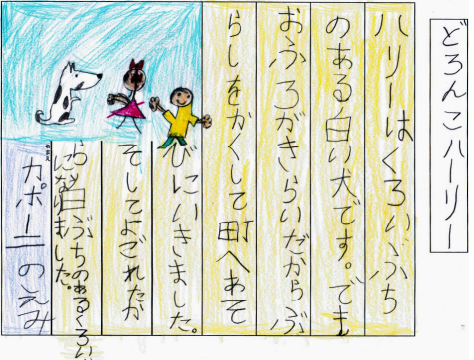 どろんこハーリー
ハリーはくろいぶち
のある白い犬です。でも
おふろがきらいだからぶ
らしをかくして町へあそ
びにいきました。
そしてよごれたか
ら白ぶちのあるくろい
になりました。
カポーニのえみ